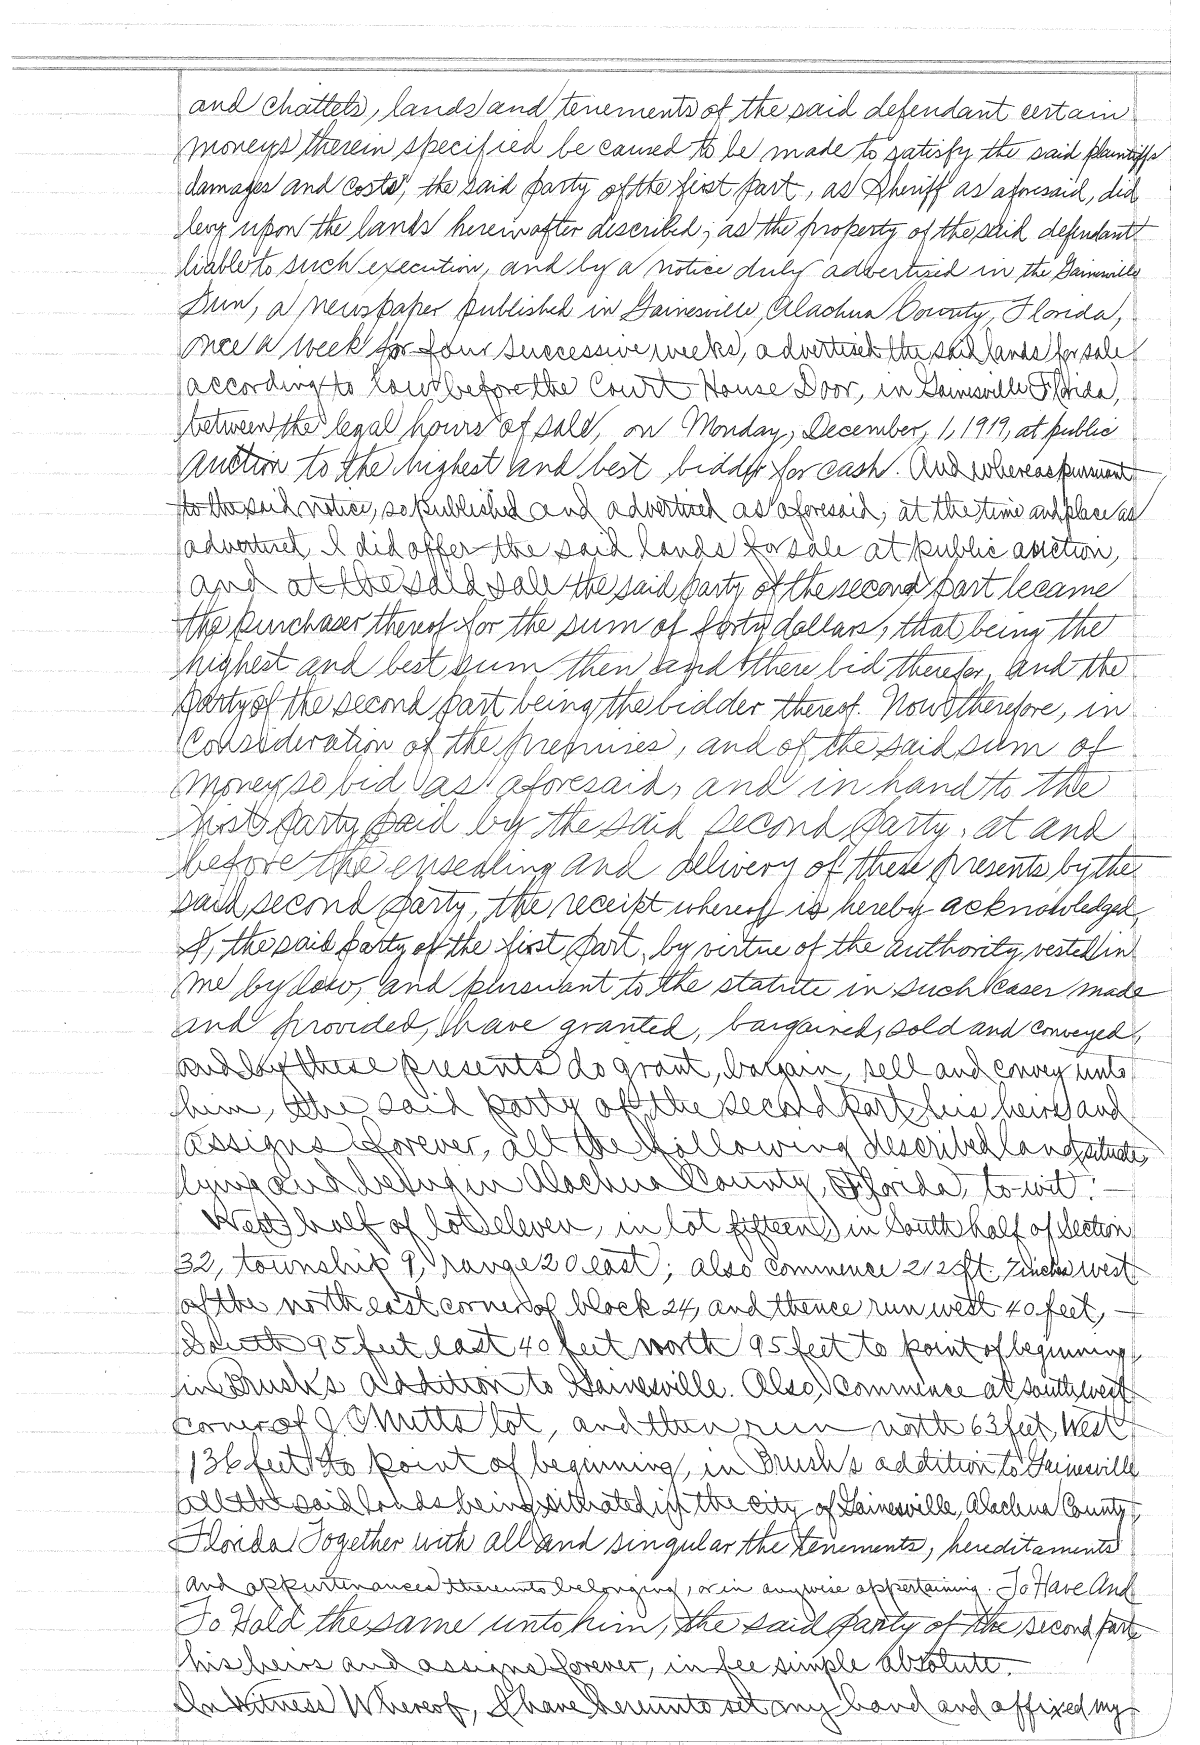 and chattels, lands and tenements of the said defendant certain
moneys therein specified be caused to be made to satisfy the said plaintiffs
damages and costs", the said party of the first part, as Sheriff as aforesaid, did
levy upon the lands hereinafter described, as the property of the said defendant
liable to such execution, and by a notice duly advertised in the Gainesville
Sun, a newspaper published in Gainesville, Alachua County, Florida,
once a week for four successive weeks, advertised the said lands for sale
according to law before the Court House Door, in Gainesville Florida,
between the legal hours of sale, on Monday, December, 1, 1919, at public
auction to the highest and best bidder for cash. And whereas pursuant
to the said notice, so published and advertised as aforesaid, at the time and place as
advertised, I did offer the said lands for sale at public auction,
and at the said sale the said party of the second part became
the purchaser thereof for the sum of forty dollars, that being the
highest and best sum then and there bid therefor, and the
party of the second part being the bidder thereof. Now therefore, in
consideration of the premises, and of the said sum of
money so bid as aforesaid, and in hand to the
first party paid by the said second party, at and
before the ensealing and delivery of these presents by the
said second party, the receipt whereof is hereby acknowledged,
I, the said party of the first part, by virtue of the authority vested in
me by law, and pursuant to the statute in such cases made
and provided, have granted, bargained, sold and conveyed,
and by these presents do grant, bargain, sell and convey unto
him, the said party of the second part, his heirs and
assigns forever, all the following described land, situate,
lying and being in Alachua County, Florida, to wit:—
West half of lot eleven, in lot fifteen, in South half of Section
32, township 9, range 20 east; also commence 212 ft. 7 inches west
of the north east corner of block 24, and thence run west 40 feet, —
South 95 feet east 40 feet north 95 feet to point of beginning
in Brush's addition to Gainesville. Also, commence at southwest
corner of J C Mutts lot, and then run north 63 feet, West
136 feet to point of beginning, in Brush's addition to Gainesville
all the said lands being situated in the city of Gainesville, Alachua County,
Florida Together with all and singular the tenements, hereditaments
and appurtenances thereunto belonging, or in anywise appertaining. To Have And
To Hold the same unto him, the said party of the second part
his heirs and assigns forever, in fee simple absolute.
In Witness Whereof, I have hereunto set my hand and affixed my